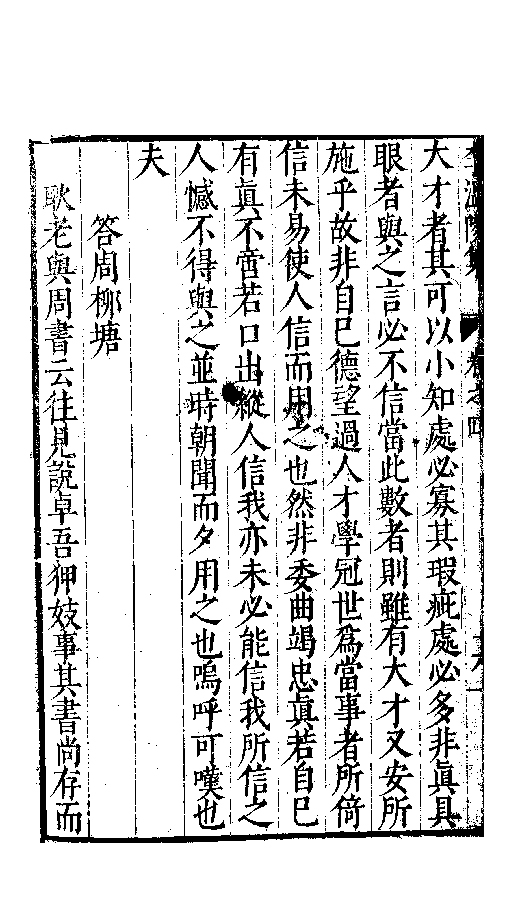 李溫陵集 卷之四
大才者其可以小知處必寡其瑕疵處必多非眞具
眼者與之言必不信當此數者則雖有大才又安所
施乎故非自己德望過人才學冠世爲當事者所倚
信未易使人信而用之也然非委曲竭忠眞若自己
有眞不啻若口出縱人信我亦未必能信我所信之
人憾不得與之並時朝聞而夕用之也嗚呼可嘆也
夫
答周柳塘
耿老與周書云往見說卓吾狎妓事其書尚存而